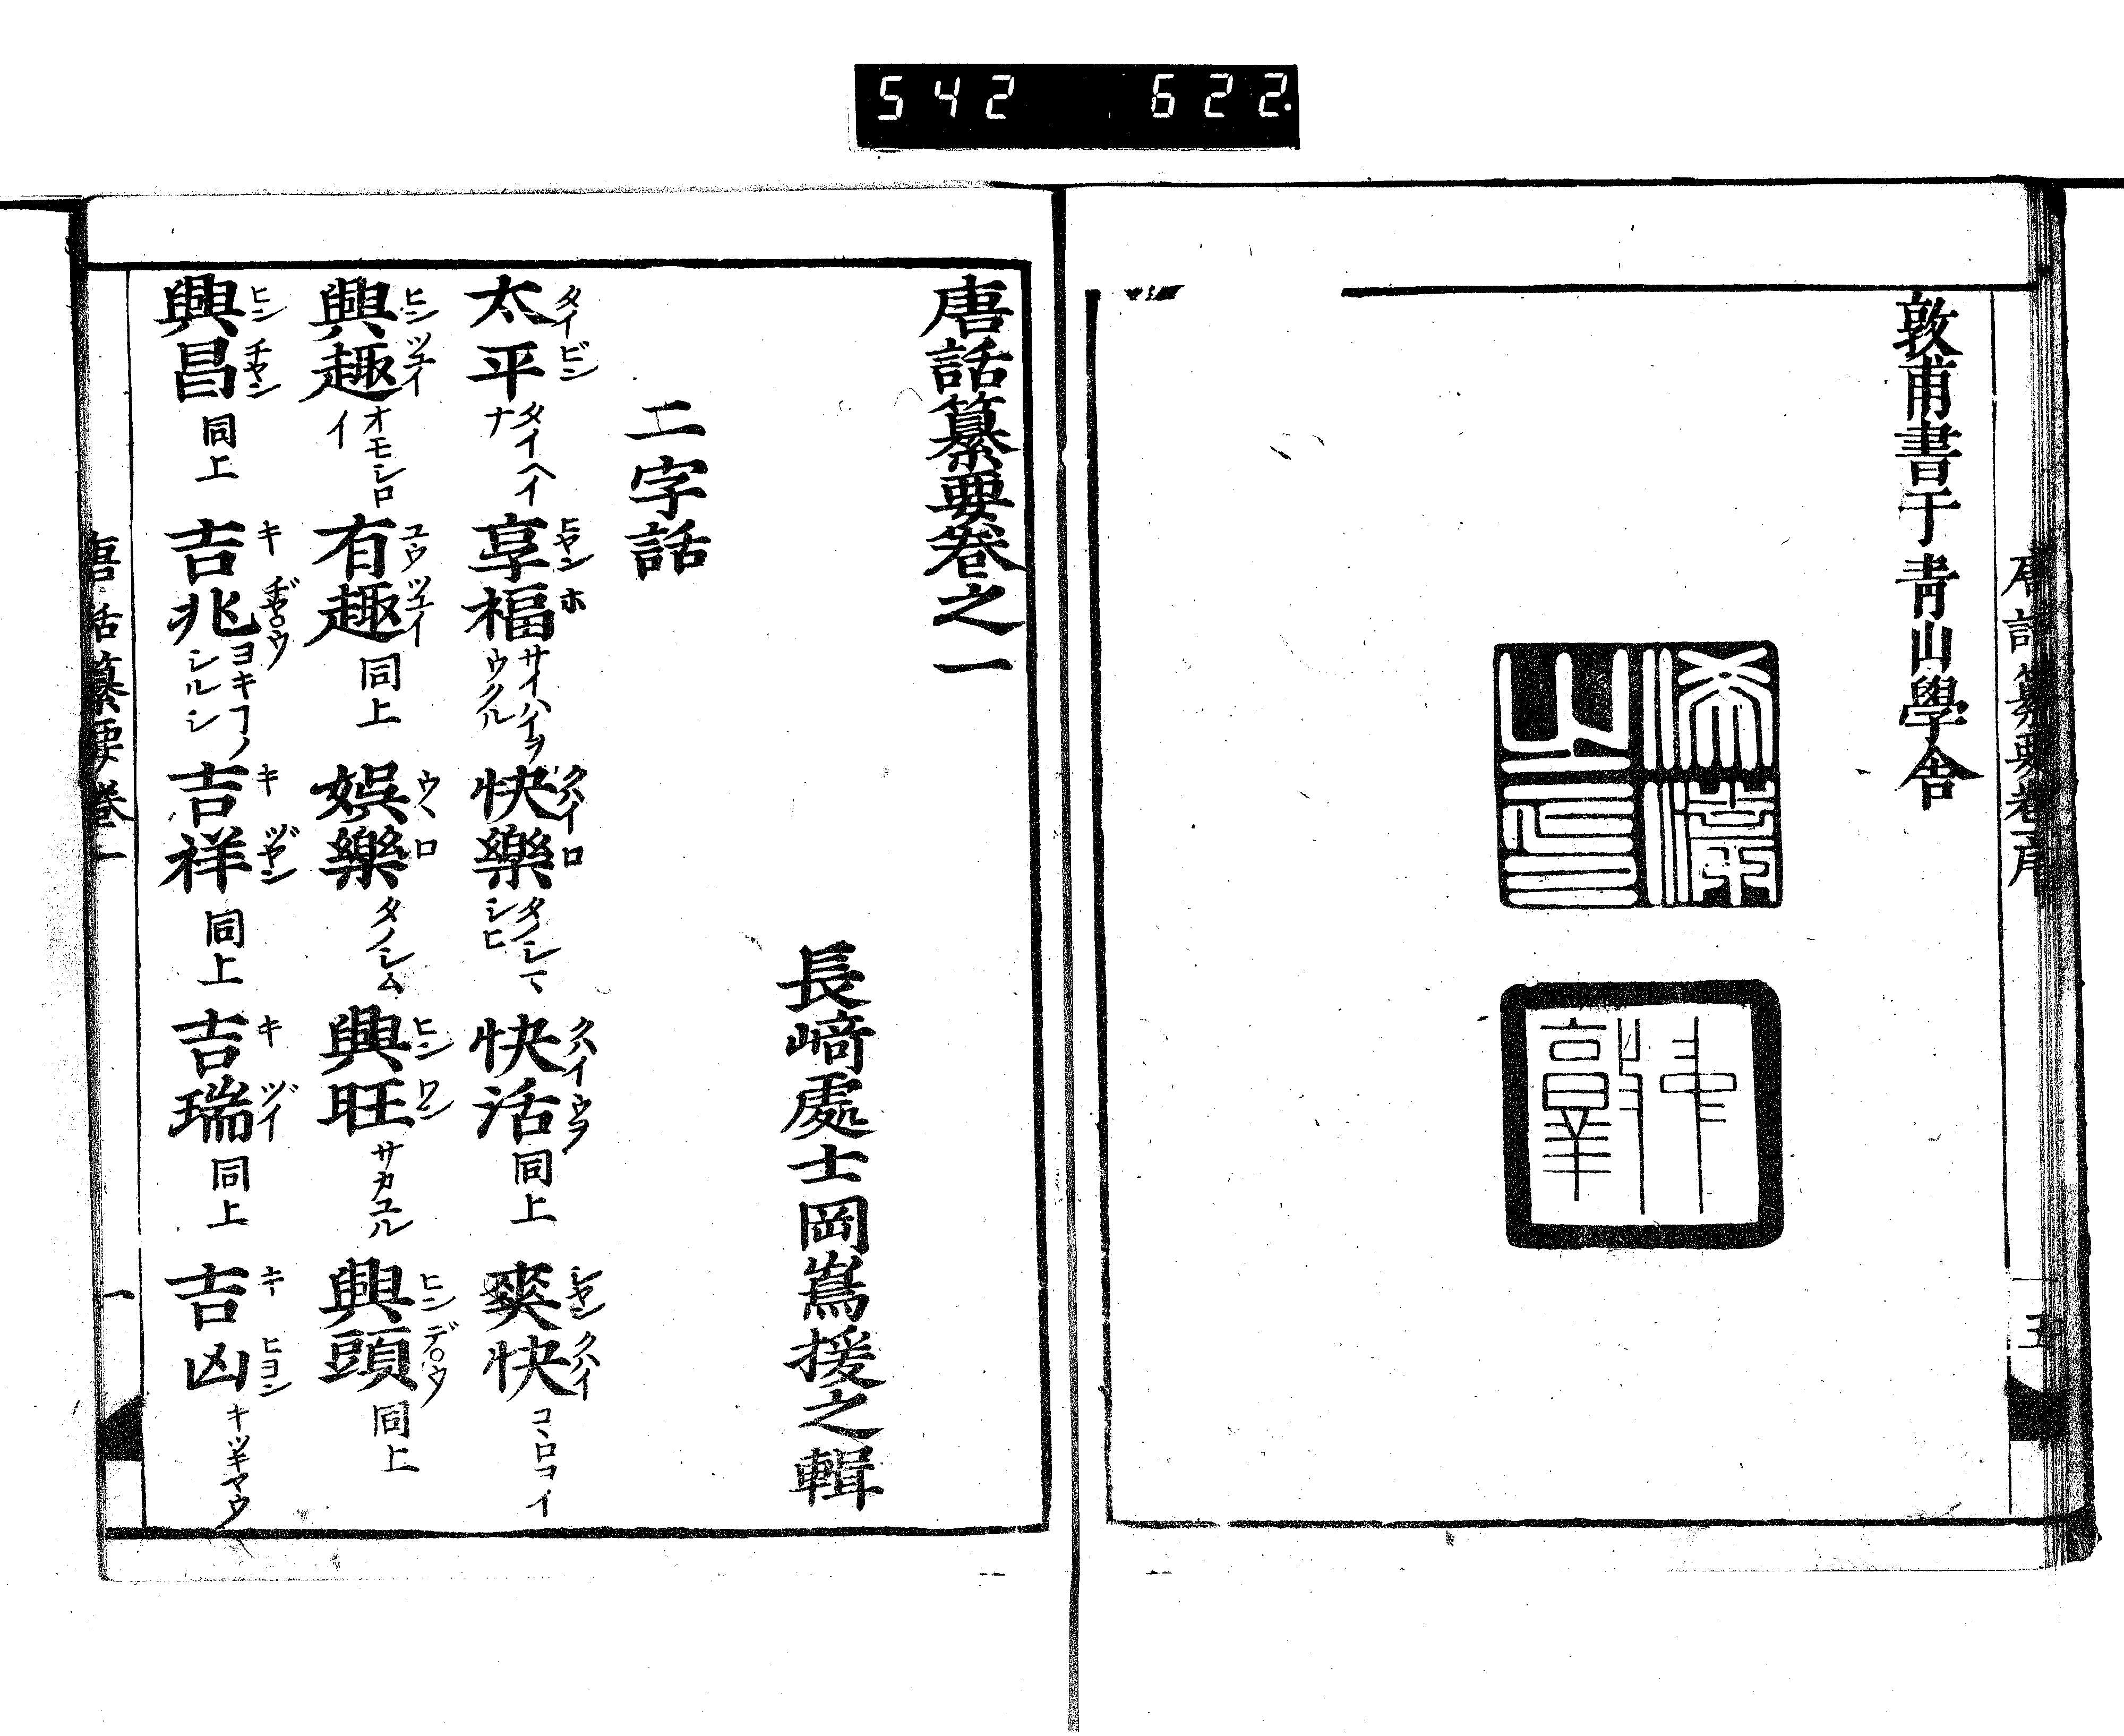 542 622.
敦甫書于青山學舍
唐話纂要卷序
五
唐話纂要卷之一
長﨑處士岡嶌援之輯
二字話
太平 タイビン タイヘイナ 享福 ヒヤンホ サイハイヲウクル 快樂 クハイロ タノシマシヒ 快活 クハイウヲ 同上 爽快 シヤンクハイ コヽロコイ
興趣 ヒンツユイ オモシロイ 有趣 ユウツユイ 同上 娯樂 ウヽロ タノシム 興旺 ヒンワン サカユル 興頭 ヒンデ゜ウ 同上
興昌 ヒンチヤン 同上 吉兆 キヂヤ゜ウ ヨキコノシルシ 吉祥 キヅヤン 同上 吉瑞 キヅイ 同上 吉凶 キヒヨン キツキヤウ
唐話纂要卷一
一